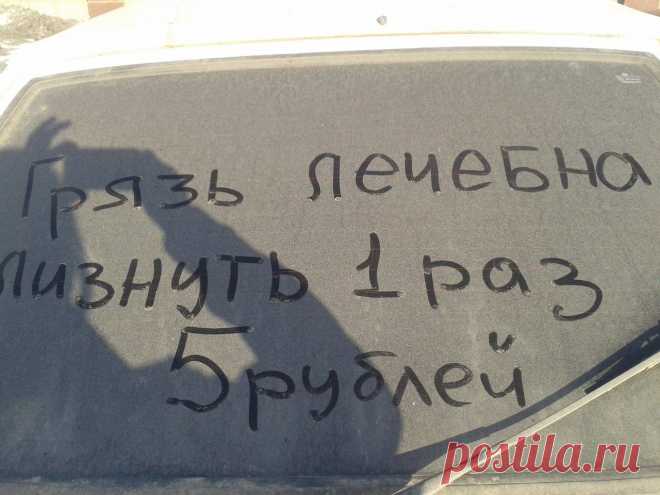 Грязь лечебна
лизнуть 1 раз
5 рублей
postila.ru